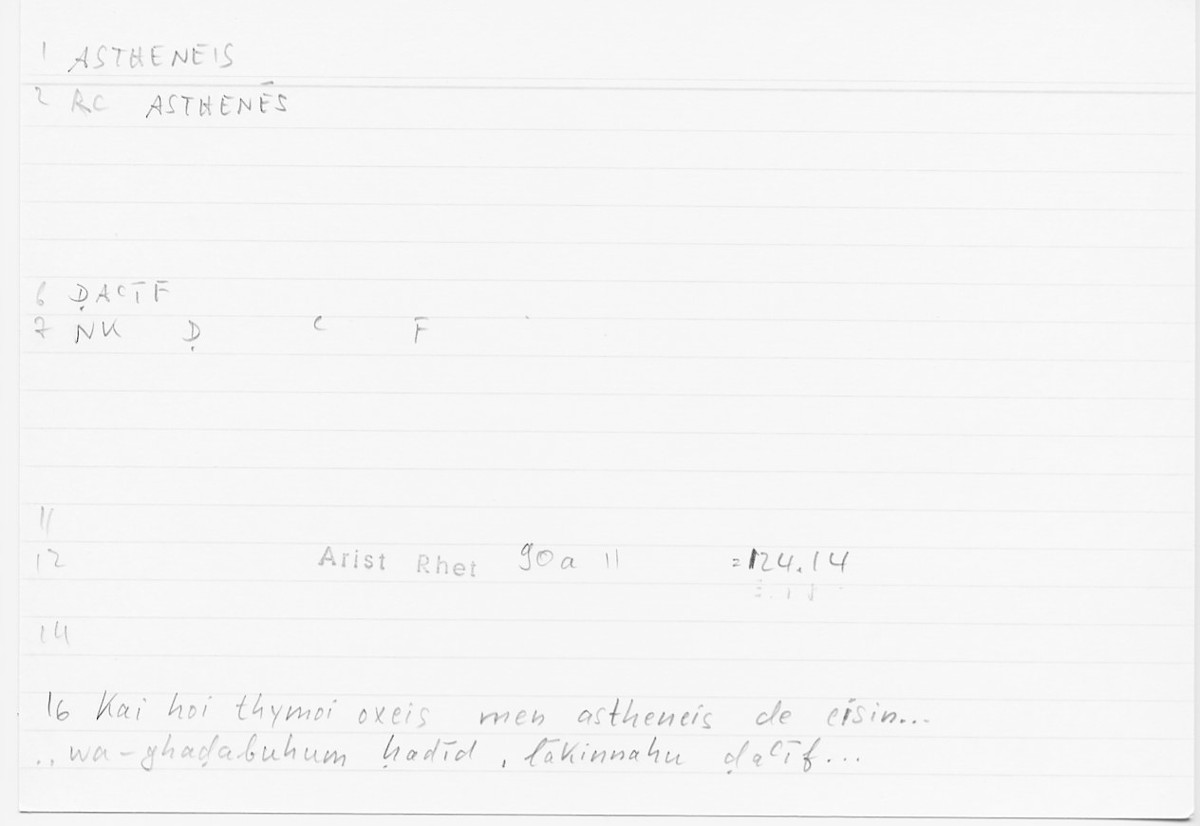 1 ASTHENEIS
2 RC ASTHENĒS
6 ḌAʿĪF
7 NK Ḍ ʿ F
11
12 Arist Rhet 90a 11 =124.14
14
16 Kai hoi thymoi oxeis men astheneis de eisin...
.. wa-ghaḍabuhum ḥadīd, lākinnahu ḍaʿīf...